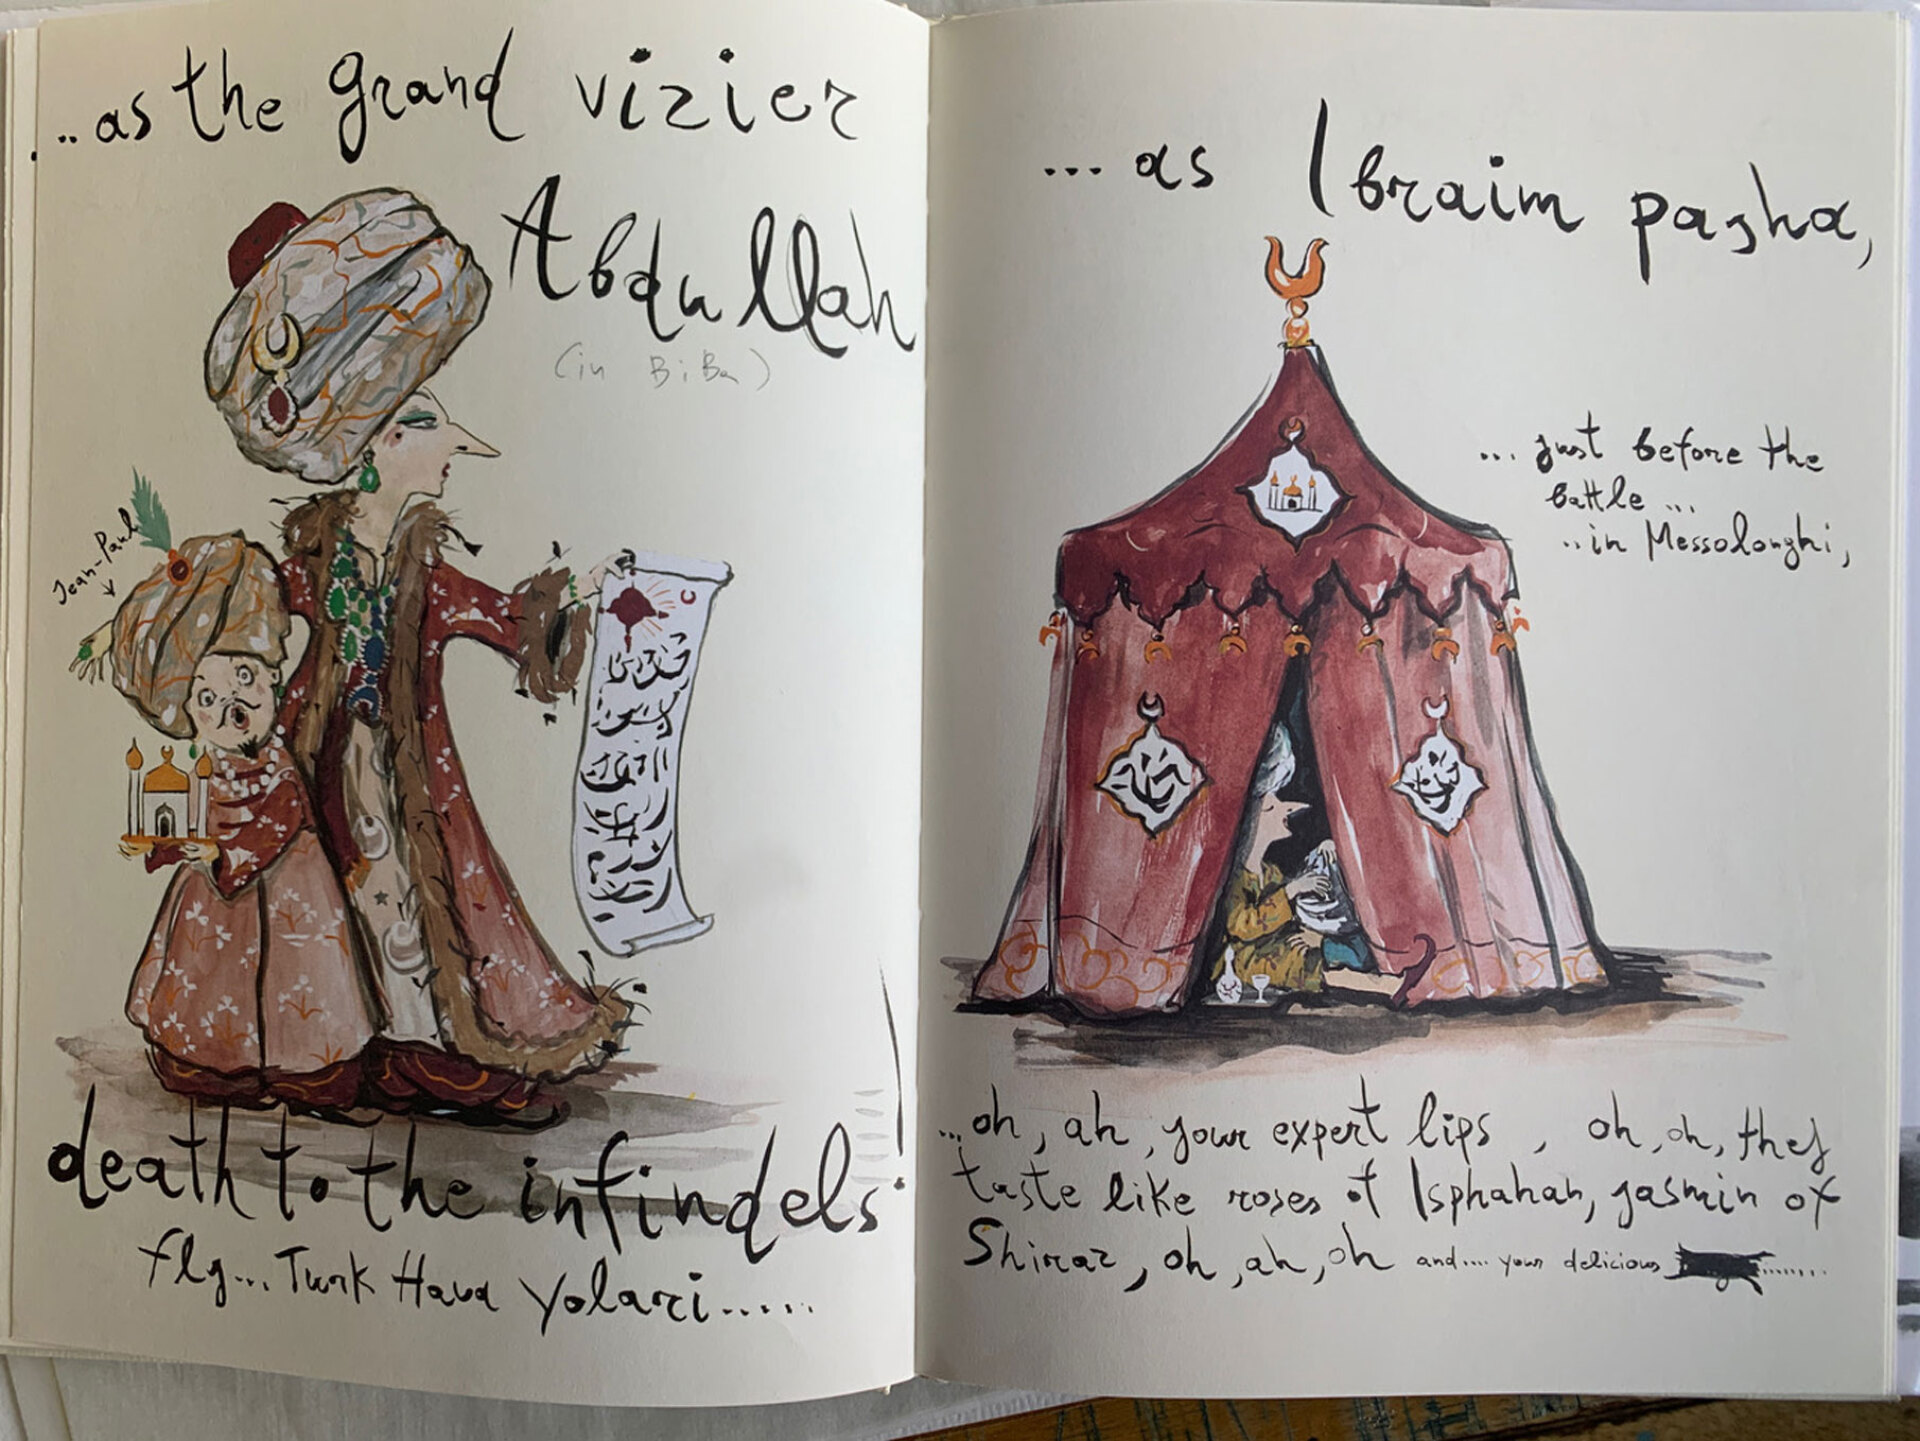 ...as the grand vizier
Abdullah
(in BiBa)
Jean-Paul
death to the infindels!
fly... Turk Hava Yolari......
... as Ibraim pasha,
... just before the
battle ...
..in Messolonghi,
...oh, ah, your expert lips, oh, oh, they
taste like roses of Isphahan, jasmin of
Shiraz, oh, ah, oh and.... your delicious ........